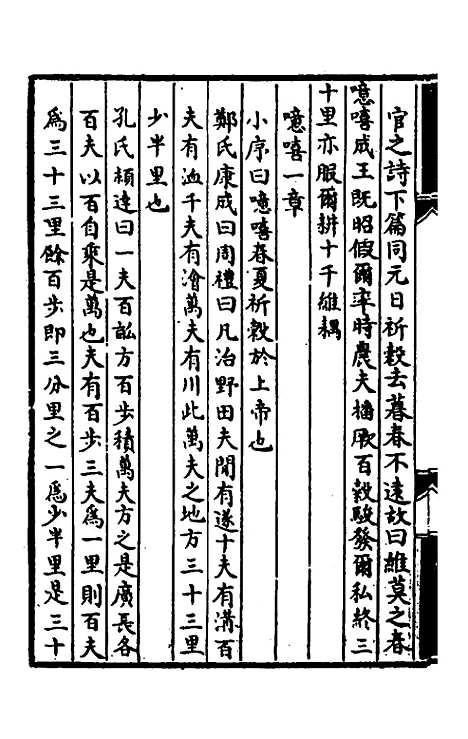 官之詩下篇同元日祈穀去暮春不遠故曰維莫之春
噫嘻成王既昭假爾率時農夫播厥百穀駿發爾私終三
十里亦服爾耕十千維耦
噫嘻一章
小序曰噫嘻春夏祈穀於上帝也
鄭氏康成曰周禮曰凡治野田夫閒有遂十夫有溝百
夫有洫千夫有澮萬夫有川此萬夫之地方三十三里
少半里也
孔氏頴達曰一夫百畝方百步積萬夫方之是廣長各
百夫以百自乘是萬也夫有百步三夫為一里則百夫
為三十三里餘百步即三分里之一為少半里是三十